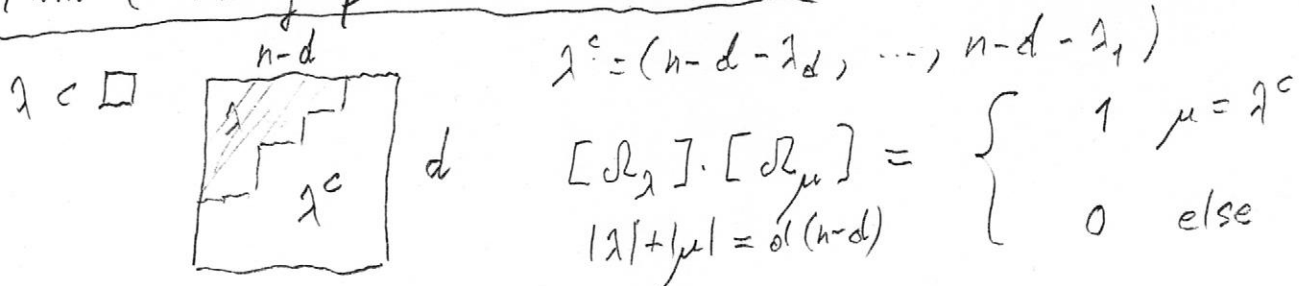 n-d
λ ⊂ □
λ
λᶜ
d
λᶜ = (n-d-λ_d, ..., n-d-λ₁)
[Ω_λ]·[Ω_μ] = { 1 μ = λᶜ
0 else
|λ|+|μ| = d(n-d)